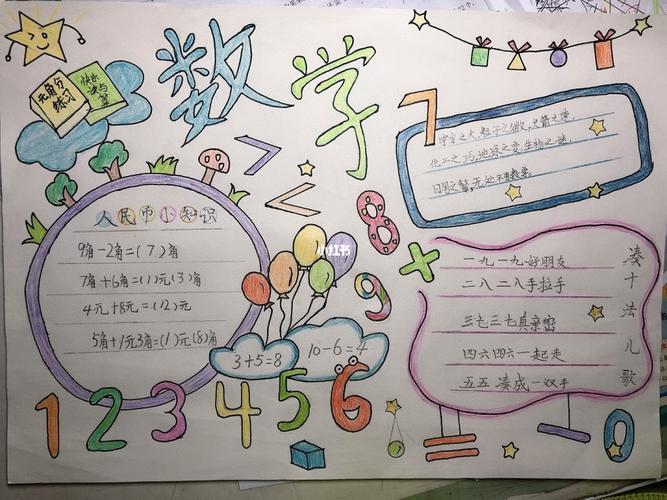 数学
元角分
练习
快乐
读与算
7
宇宙之大,粒子之微,火箭之速,
化工之巧,地球之变,生物之谜,
日用之繁,无处不用数学。
> <
8
9
+
人民币小知识
9角-2角=(7)角
7角+6角=(1)元(3)角
4元+8元=(12)元
5角+1元3角=(1)元(8)角
小红书
3+5=8
10-6=4
凑十法儿歌
一九一九好朋友
二八二八手拉手
三七三七真亲密
四六四六一起走
五五凑成一双手
1 2 3 4 5 6 = - 0